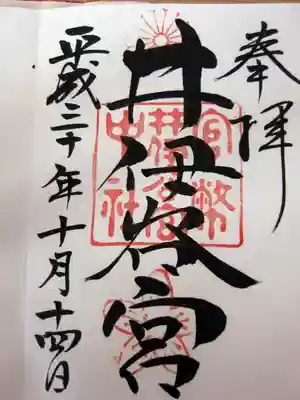 奉拝
井伊谷宮
官幣
井伊谷宮
中社
平成三十年十月十四日